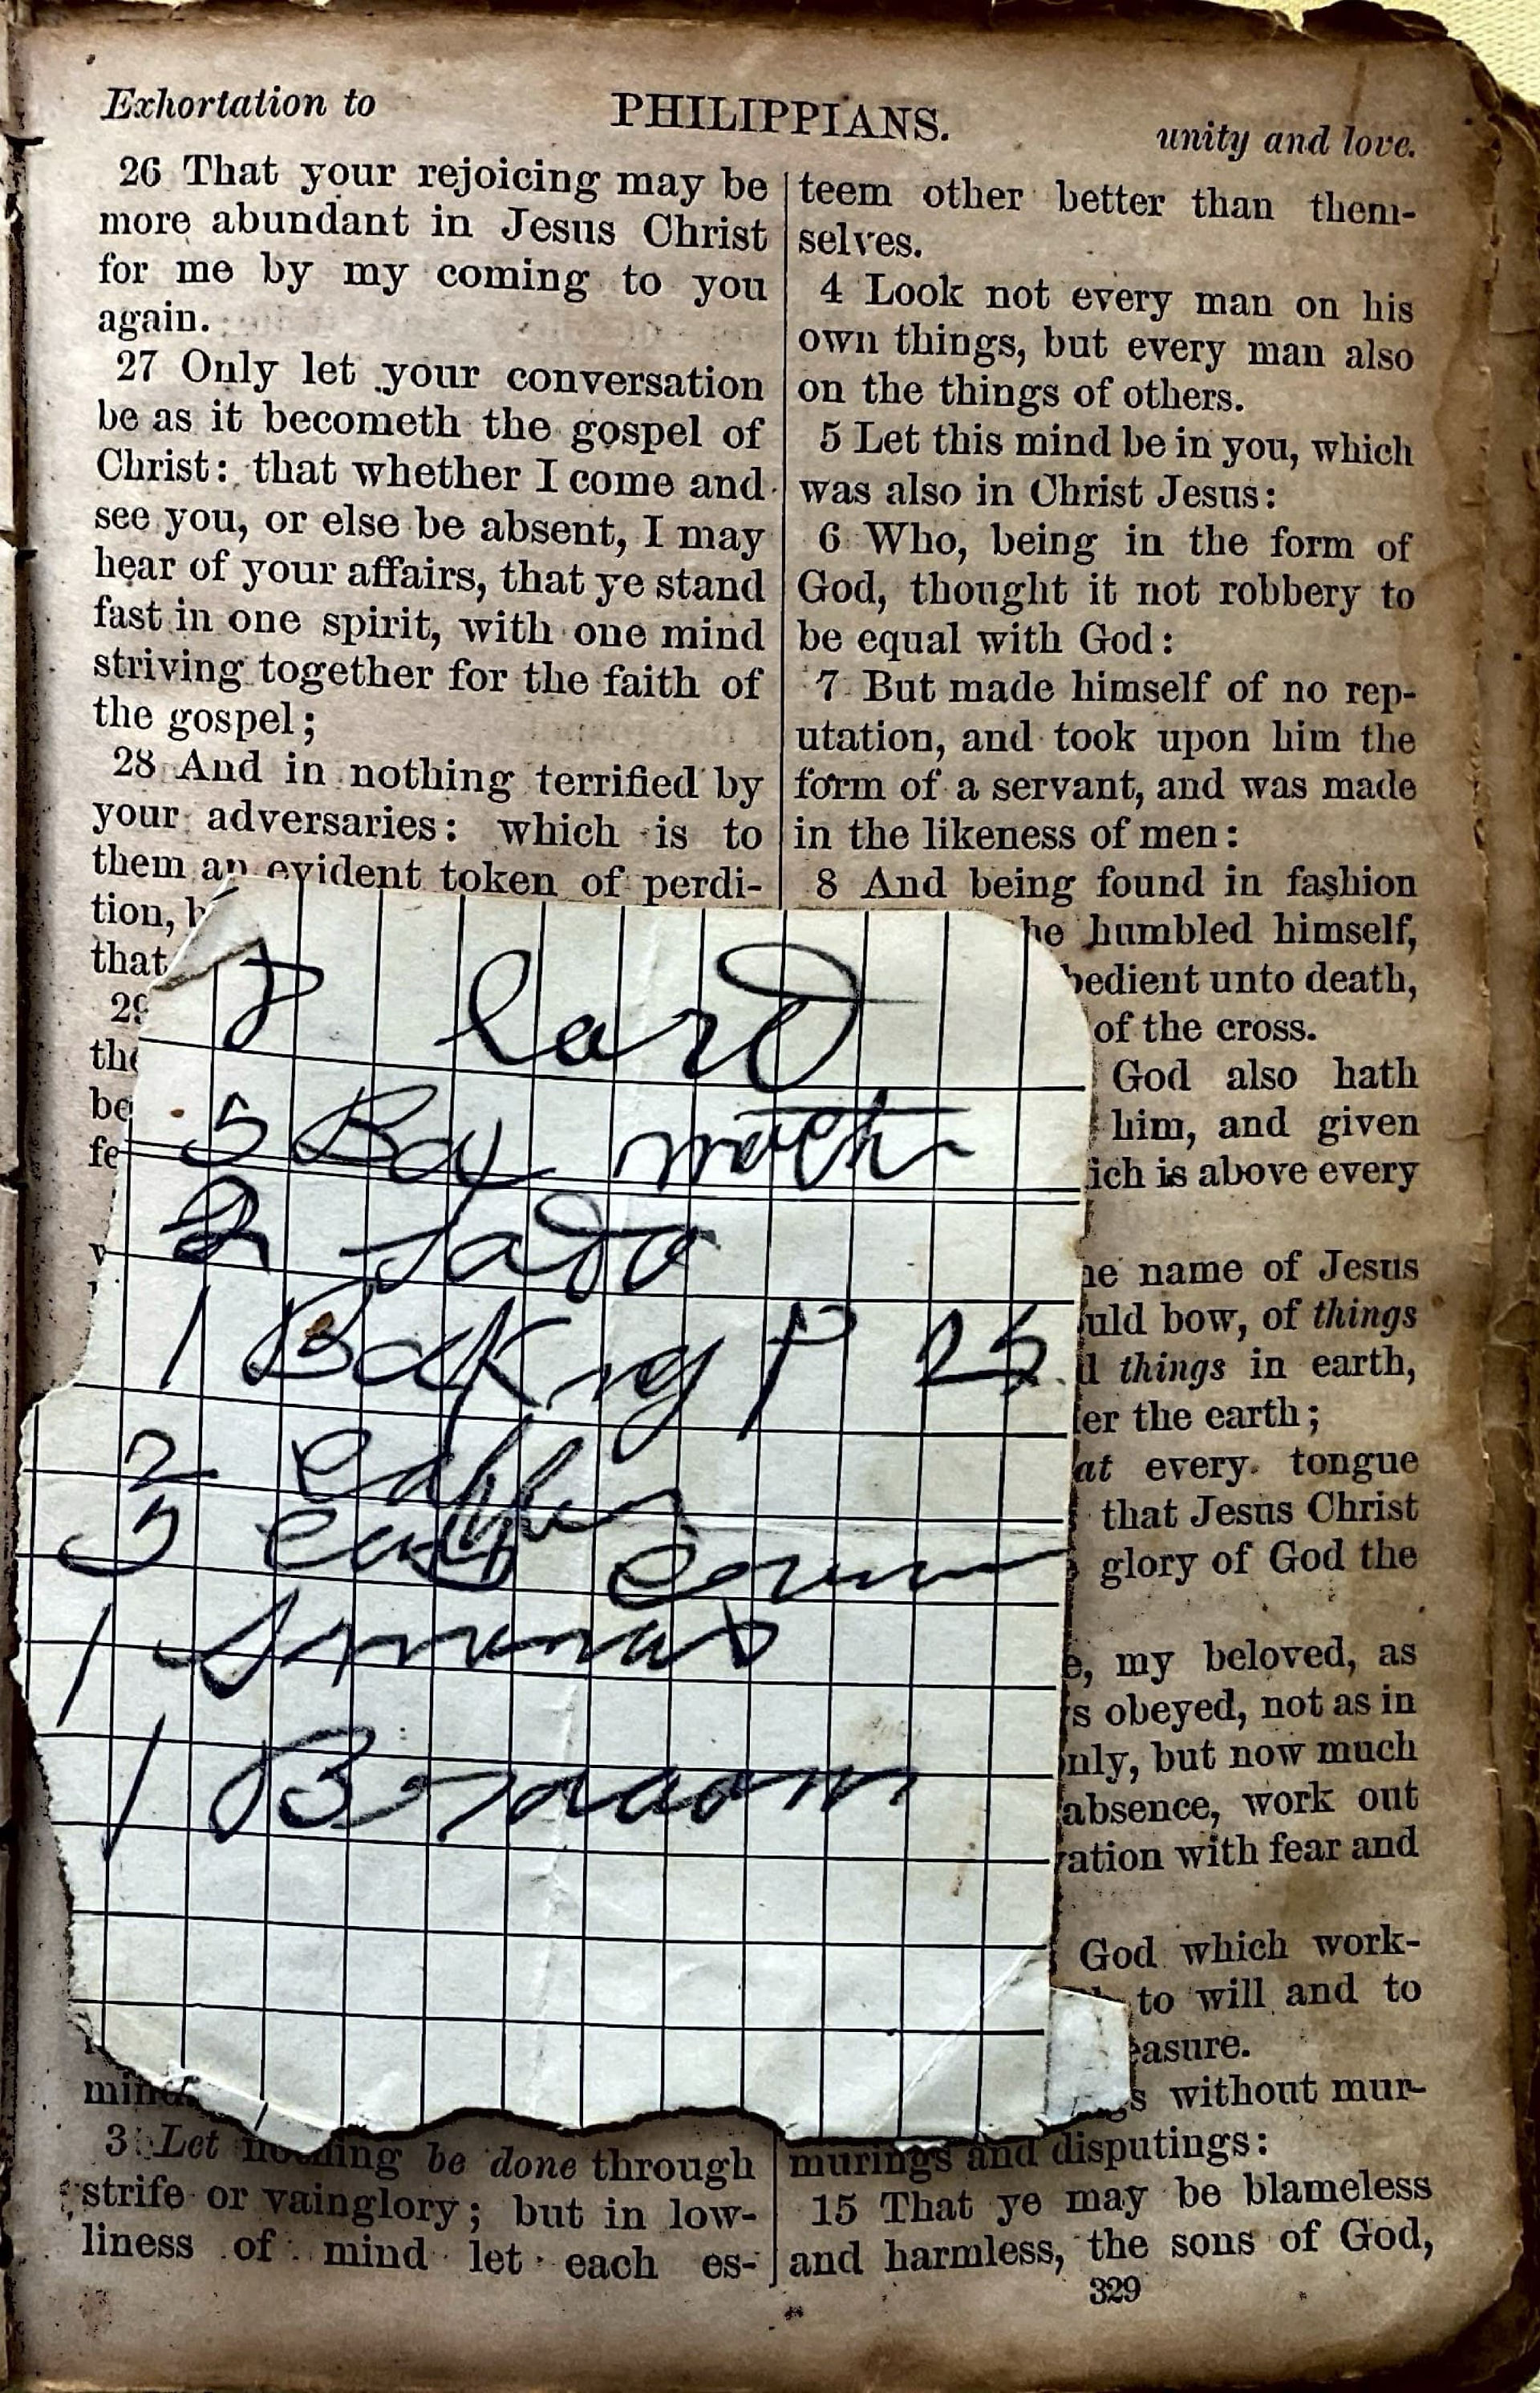 Exhortation to PHILIPPIANS. unity and love.
26 That your rejoicing may be
more abundant in Jesus Christ
for me by my coming to you
again.
27 Only let your conversation
be as it becometh the gospel of
Christ: that whether I come and
see you, or else be absent, I may
hear of your affairs, that ye stand
fast in one spirit, with one mind
striving together for the faith of
the gospel;
28 And in nothing terrified by
your adversaries: which is to
them an evident token of perdi-
tion,
that
29
the
be
lard
5 Box
2 Soda
1 Baking P 25
2
5
1
1
3 Let nothing be done through
strife or vainglory; but in low-
liness of mind let each es-
teem other better than them-
selves.
4 Look not every man on his
own things, but every man also
on the things of others.
5 Let this mind be in you, which
was also in Christ Jesus:
6 Who, being in the form of
God, thought it not robbery to
be equal with God:
7 But made himself of no rep-
utation, and took upon him the
form of a servant, and was made
in the likeness of men:
8 And being found in fashion
he humbled himself,
bedient unto death,
of the cross.
God also hath
him, and given
ich is above every
he name of Jesus
uld bow, of things
things in earth,
er the earth;
at every tongue
that Jesus Christ
glory of God the
e, my beloved, as
s obeyed, not as in
nly, but now much
absence, work out
vation with fear and
God which work-
to will and to
easure.
s without mur-
murings and disputings:
15 That ye may be blameless
and harmless, the sons of God,
329